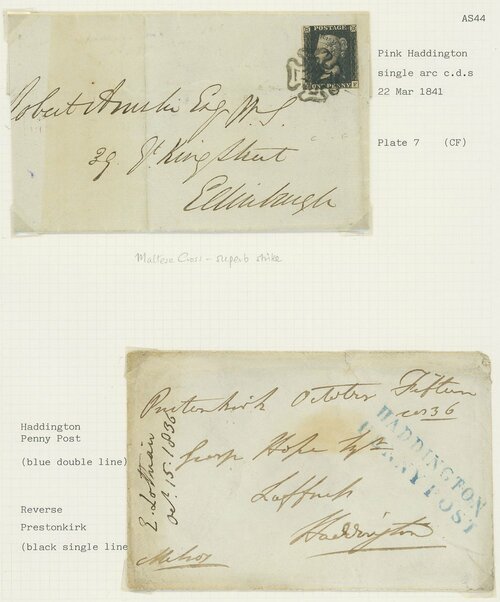 AS44
POSTAGE
ONE PENNY
Pink Haddington
single arc c.d.s
22 Mar 1841
Plate 7 (CF)
Robert Esq W.S.
39 Gt King Street
Edinburgh
Maltese Cross - superb strike
Haddington
Penny Post
(blue double line)
Reverse
Prestonkirk
(black single line
Prestonkirk October Fifteen
1836
HADDINGTON
PENNY POST
George Hope Esqr
Luffness
Haddington
Melros
Oct. 15. 1836